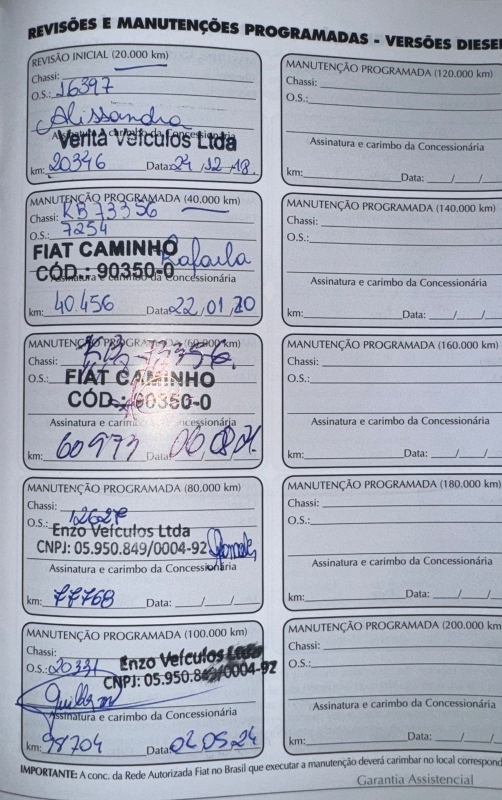 REVISÕES E MANUTENÇÕES PROGRAMADAS - VERSÕES DIESEL
REVISÃO INICIAL (20.000 km)
Chassi:
O.S.: 16397
Alissandra
Assinatura e carimbo da Concessionária
Verita Veículos Ltda
km: 20346 Data: 24/12/18
MANUTENÇÃO PROGRAMADA (40.000 km)
Chassi: KB73356
O.S.: 7254
FIAT CAMINHO Rafaela
CÓD.: 90350-0
Assinatura e carimbo da Concessionária
km: 40.456 Data: 22/01/20
MANUTENÇÃO PROGRAMADA (60.000 km)
Chassi: KB-73356
O.S.:
FIAT CAMINHO
CÓD.: 90350-0
Assinatura e carimbo da Concessionária
km: 60973 Data: 06/08/
MANUTENÇÃO PROGRAMADA (80.000 km)
Chassi:
O.S.: 12627
Enzo Veículos Ltda
CNPJ: 05.950.849/0004-92
Assinatura e carimbo da Concessionária
km: 77768 Data: __/__/__
MANUTENÇÃO PROGRAMADA (100.000 km)
Chassi:
O.S.: 20331
Enzo Veículos Ltda
CNPJ: 05.950.849/0004-92
Assinatura e carimbo da Concessionária
km: 98704 Data: 02/05/24
MANUTENÇÃO PROGRAMADA (120.000 km)
Chassi:
O.S.:
Assinatura e carimbo da Concessionária
km: Data: __/__/
MANUTENÇÃO PROGRAMADA (140.000 km)
Chassi:
O.S.:
Assinatura e carimbo da Concessionária
km: Data: __/__/
MANUTENÇÃO PROGRAMADA (160.000 km)
Chassi:
O.S.:
Assinatura e carimbo da Concessionária
km: Data: __/__/
MANUTENÇÃO PROGRAMADA (180.000 km)
Chassi:
O.S.:
Assinatura e carimbo da Concessionária
km: Data: __/__/
MANUTENÇÃO PROGRAMADA (200.000 km
Chassi:
O.S.:
Assinatura e carimbo da Concessionária
km: Data: __/__/
IMPORTANTE: A conc. da Rede Autorizada Fiat no Brasil que executar a manutenção deverá carimbar no local correspond
Garantia Assistencial